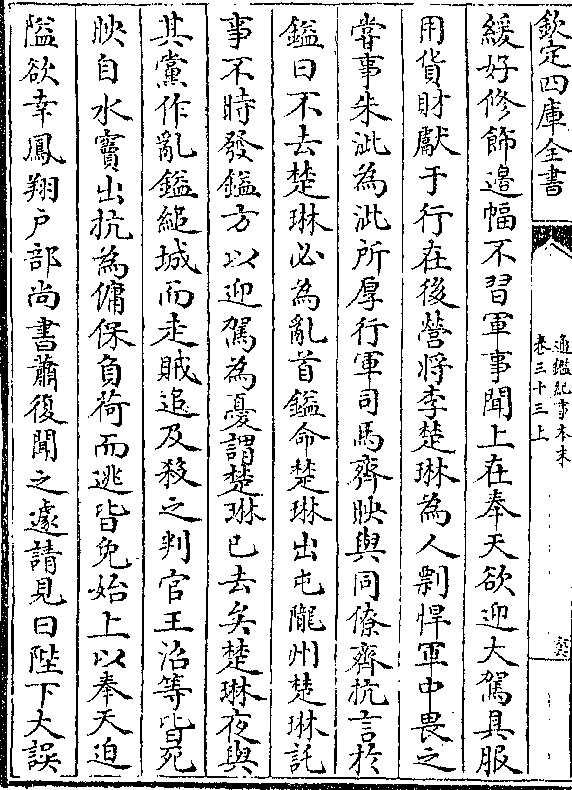 欽定四庫全書
通鑑紀事本末
卷三十三上
緩好修飾邊幅不習軍事聞上在奉天欲迎大駕具服
用貨財獻于行在後營將李楚琳為人剽悍軍中畏之
嘗事朱泚為泚所厚行軍司馬齊映與同僚齊抗言於
鎰曰不去楚琳必為亂首鎰命楚琳出屯隴州楚琳託
事不時發鎰方以迎駕為憂謂楚琳已去矣楚琳夜與
其黨作亂鎰縋城而走賊追及殺之判官王沼等皆死
映自水竇出抗為傭保負荷而逃皆免始上以奉天迫
隘欲幸鳳翔户部尚書蕭復聞之遽請見曰陛下大誤